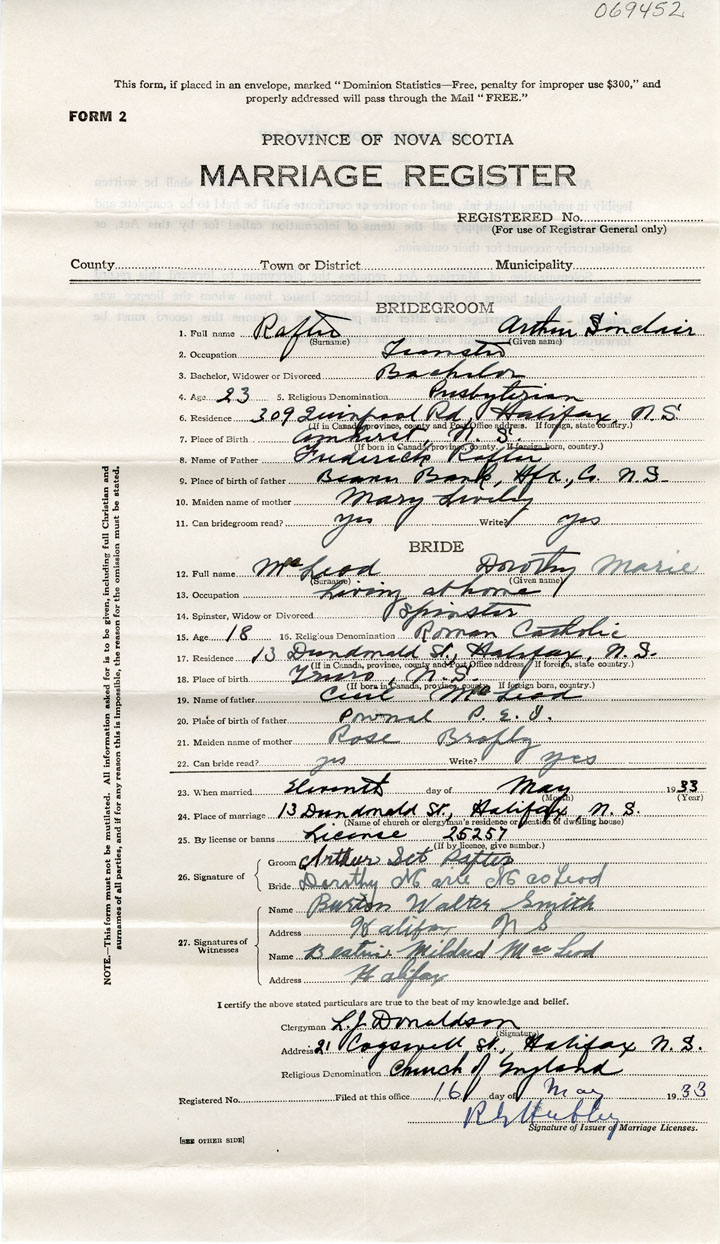 069452
This form, if placed in an envelope, marked "Dominion Statistics—Free, penalty for improper use $300," and
properly addressed will pass through the Mail "FREE."
FORM 2
PROVINCE OF NOVA SCOTIA
MARRIAGE REGISTER
REGISTERED No.
(For use of Registrar General only)
County Town or District Municipality
BRIDEGROOM
1. Full name Rafter Arthur Sinclair
(Surname) (Given name)
2. Occupation Teamster
3. Bachelor, Widower or Divorced Bachelor
4. Age 23 5. Religious Denomination Presbyterian
6. Residence 309 Quinpool Rd, Halifax, N.S.
(If in Canada, province, county and Post Office address. If foreign, state country.)
7. Place of Birth Amherst, N.S.
(If born in Canada, province, county. If foreign born, country.)
8. Name of Father Frederick Rafter
9. Place of birth of father Beaver Bank, Hfx., Co. N.S.
10. Maiden name of mother Mary Lively
11. Can bridegroom read? yes Write? yes
BRIDE
12. Full name McLeod Dorothy Marie
(Surname) (Given name)
13. Occupation Living at home
14. Spinster, Widow or Divorced Spinster
15. Age 18 16. Religious Denomination Roman Catholic
17. Residence 13 Dundonald St., Halifax, N.S.
(If in Canada, province, county and Post Office address. If foreign, state country.)
18. Place of birth Truro, N.S.
(If born in Canada, province, county. If foreign born, country.)
19. Name of father Cecil MacLeod
20. Place of birth of father Pownal P.E.I.
21. Maiden name of mother Rose Brophy
22. Can bride read? yes Write? yes
23. When married Eleventh day of May 1933
(Month) (Year)
24. Place of marriage 13 Dundonald St., Halifax, N.S.
(Name of church or clergyman's residence or location of dwelling house)
25. By license or banns License 25257
(If by licence, give number.)
26. Signature of
Groom Arthur Rafter
Bride Dorothy Marie MacLeod
27. Signatures of Witnesses
Name Burton Walter Smith
Address Halifax N S
Name Beatrice Mildred MacLeod
Address Halifax
I certify the above stated particulars are true to the best of my knowledge and belief.
Clergyman L.J. Donaldson
(Signature)
Address 21 Cogswell St., Halifax N.S.
Religious Denomination Church of England
Registered No. Filed at this office 16 day of May 1933
Signature of Issuer of Marriage Licenses.
[SEE OTHER SIDE]
NOTE.—This form must not be mutilated. All information asked for is to be given, including full Christian and
surnames of all parties, and if for any reason this is impossible, the reason for the omission must be stated.